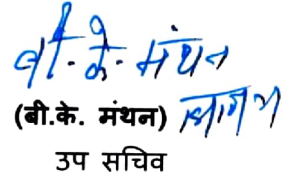 बी.के. मंथन
(बी.के. मंथन)
उप सचिव